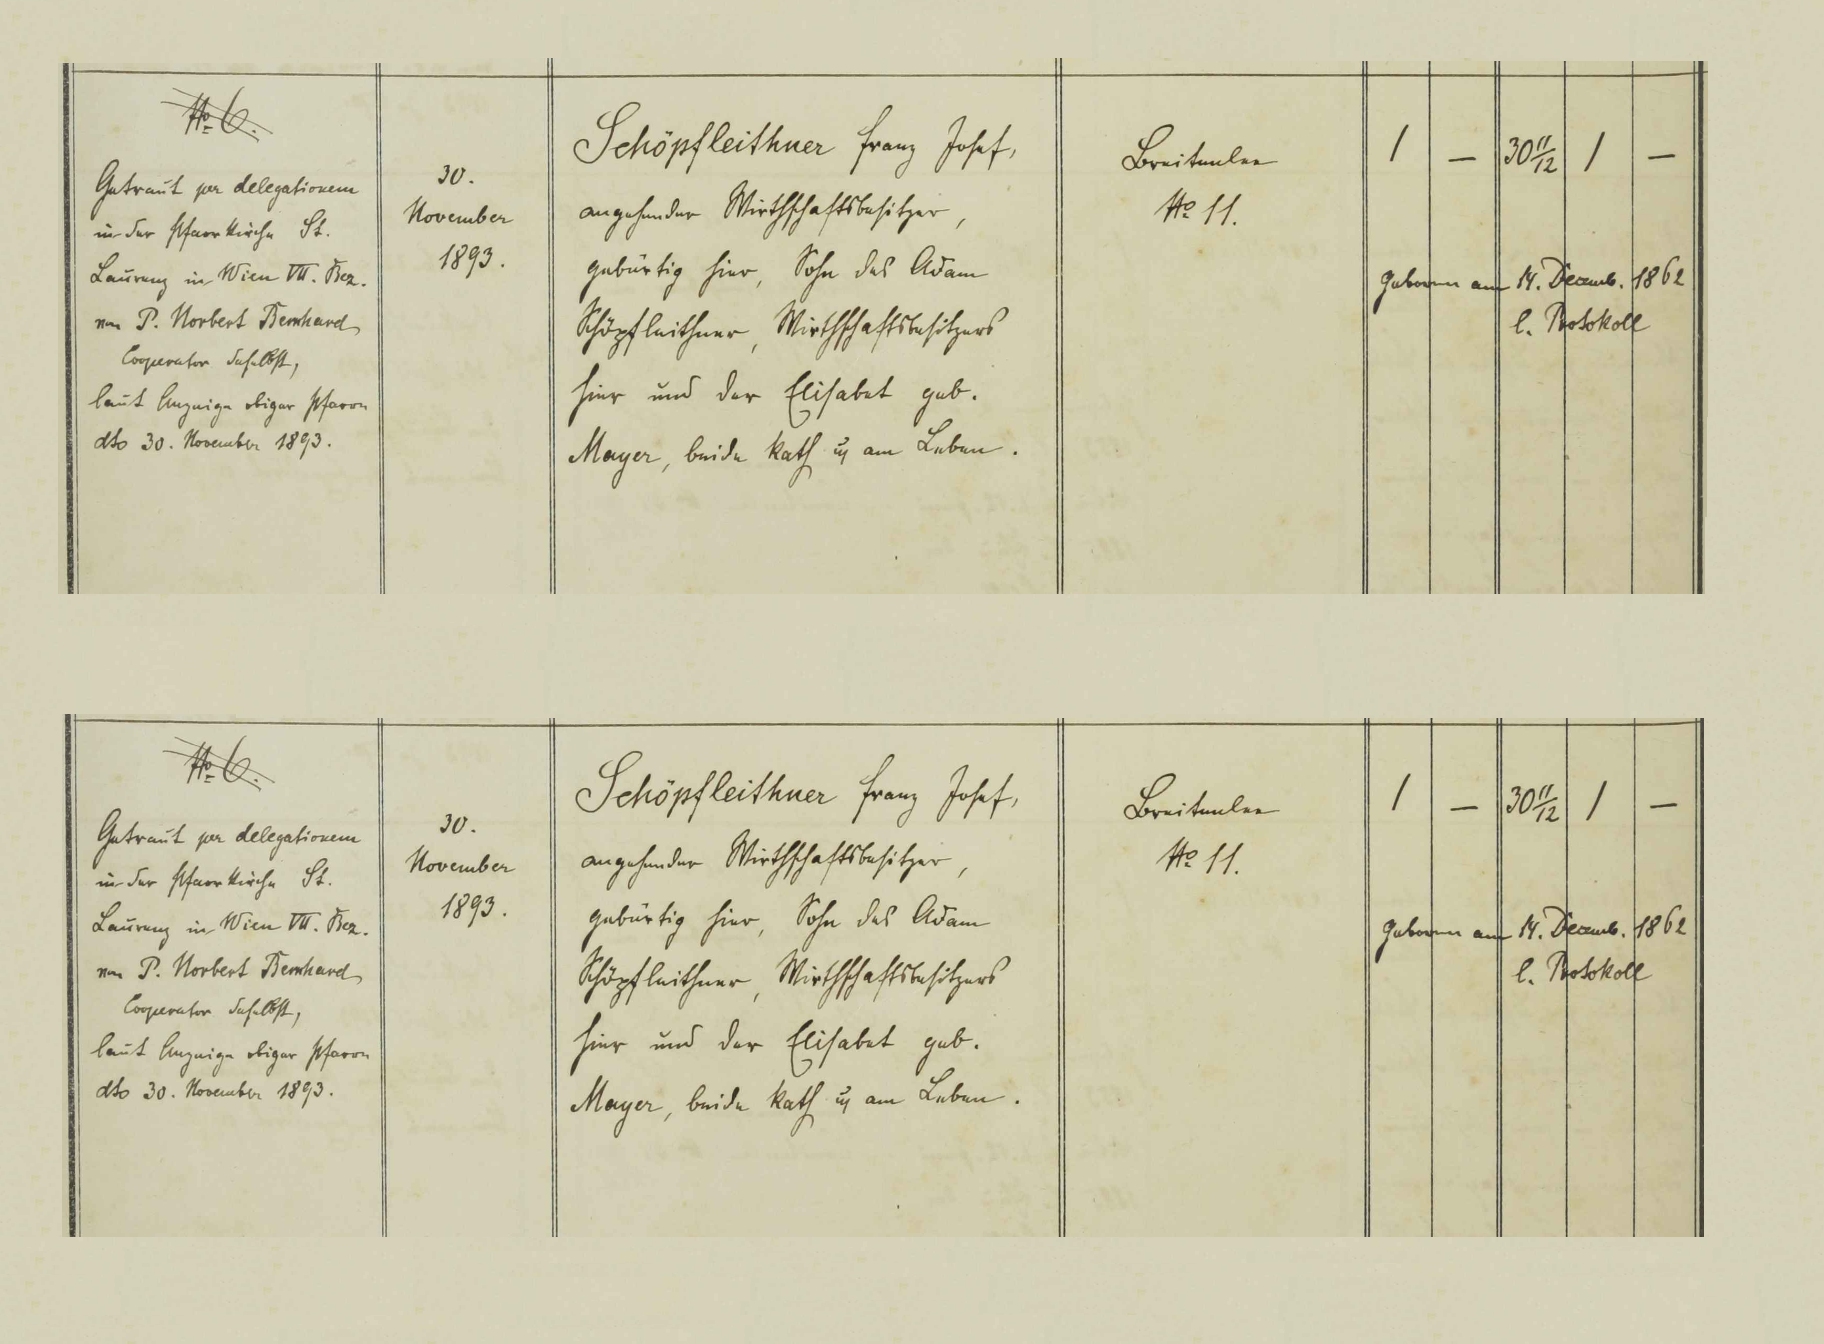 No 6.
Getraut per delegationem
in der Pfarrkirche St.
Laurenz in Wien VII. Bez.
von P. Norbert Bernhard,
Cooperator daselbst,
laut Anzeige obiger Pfarre
dto 30. November 1893.
30.
November
1893.
Schöpfleithner Franz Josef,
angehender Wirthschaftsbesitzer,
gebürtig hier, Sohn des Adam
Schöpfleithner, Wirthschaftsbesitzers
hier und der Elisabet geb.
Mayer, beide kath. u. am Leben.
Breitenlee
No 11.
1 — 30 11/12 1 —
geboren am 14. Decemb. 1862
l. Protokoll
No 6.
Getraut per delegationem
in der Pfarrkirche St.
Laurenz in Wien VII. Bez.
von P. Norbert Bernhard,
Cooperator daselbst,
laut Anzeige obiger Pfarre
dto 30. November 1893.
30.
November
1893.
Schöpfleithner Franz Josef,
angehender Wirthschaftsbesitzer,
gebürtig hier, Sohn des Adam
Schöpfleithner, Wirthschaftsbesitzers
hier und der Elisabet geb.
Mayer, beide kath. u. am Leben.
Breitenlee
No 11.
1 — 30 11/12 1 —
geboren am 14. Decemb. 1862
l. Protokoll